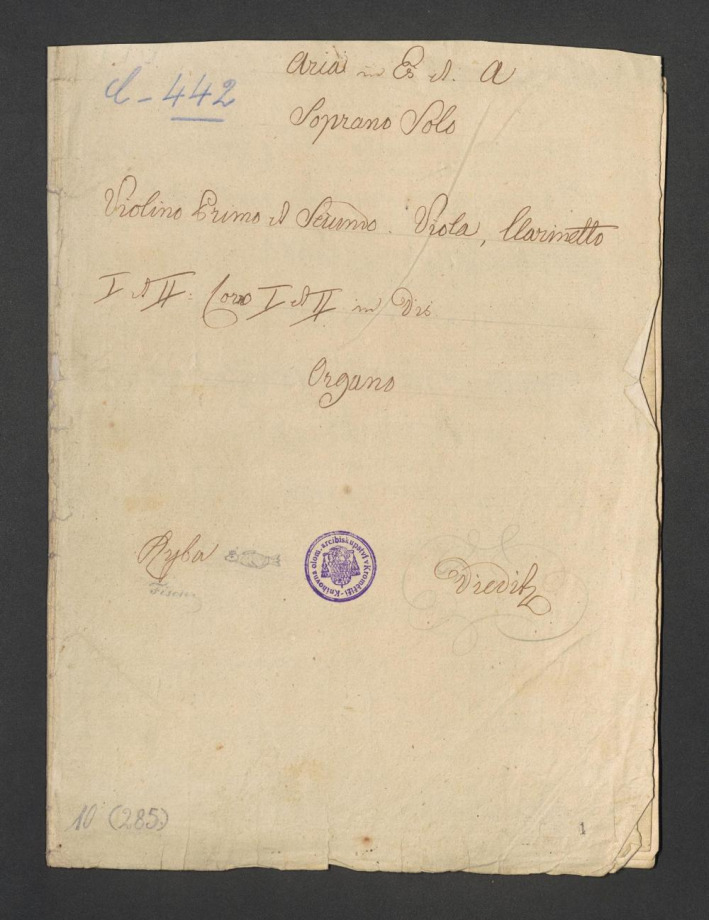 C - 442
Aria in Es et. A
Soprano Solo
Violino Primo et Secundo. Viola, Clarinetto
I et II: Corno I et II in Dis
Organo
Ryba
Fischer
Knihovna olom. arcibiskupství v Kroměříži
Dieditz
10 (285)
1